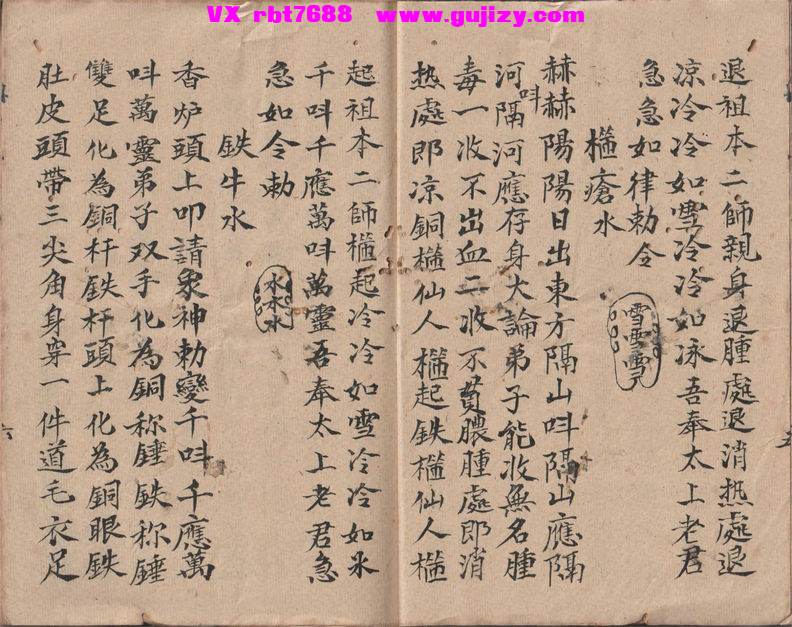 VX rbt7688 www.gujizy.com
退祖本二師親身退腫處退消热處退
凉冷冷如雪冷冷如冰吾奉太上老君
急急如律勅令
雪雪雪
槛瘡水
赫赫陽陽日出東方隔山呌隔山應隔
河呌隔河應存身大論弟子能收無名腫
毒一收不出血二收不貫膿腫處即消
热處即凉銅槛仙人槛起鉄槛仙人槛
起祖本二師槛起冷冷如雪冷冷如氷
千呌千應萬呌萬靈吾奉太上老君急
急如令勅
水水水
鉄牛水
香炉頭上叩請衆神勅變千呌千應萬
呌萬靈弟子双手化為銅称錘鉄称錘
雙足化為銅杆鉄杆頭上化為銅眼鉄
肚皮頭帶三尖角身穿一件道毛衣足
五
六